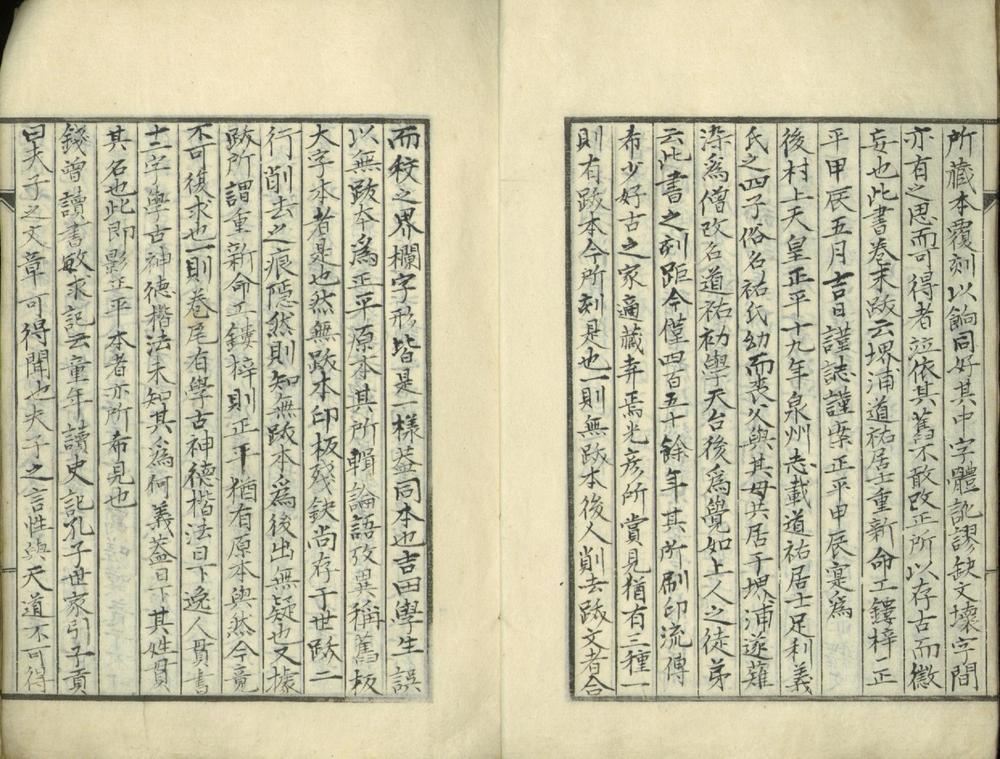 所藏本覆刻以餉同好其中字體訛謬缺文壞字間
亦有之思而可得者竝依其舊不敢改正所以存古而徵
妄也此書卷末跋云堺浦道祐居士重新命工鏤梓正
平甲辰五月吉日謹誌謹案正平甲辰寔爲
後村上天皇正平十九年泉州志載道祐居士足利義
氏之四子俗名祐氏幼而喪父與其母共居于堺浦遂薙
染爲僧改名道祐初學天台後爲覺如上人之徒弟
云此書之刻距今僅四百五十餘年其所刷印流傳
希少好古之家適藏弆焉光彦所賞見猶有三種一
則有跋本今所刻是也一則無跋本後人削去跋文者合
而校之界欄字形皆是一樣葢同本也吉田學生誤
以無跋本爲正平原本其所輯論語攷異稱舊板
大字本者是也然無跋本印板殘缺尚存于世跋二
行削去之痕隱然則知無跋本爲後出無疑也又據
跋所謂重新命工鏤梓則正平猶有原本與然今竟
不可復求也一則卷尾有學古神德楷法日下逸人貫書
十二字學古神德楷法未知其爲何義葢日下其姓貫
其名也此即影正平本者亦所希見也
錢曾讀書敏求記云童年讀史記孔子世家引子貢
曰夫子之文章可得聞也夫子之言性與天道不可得